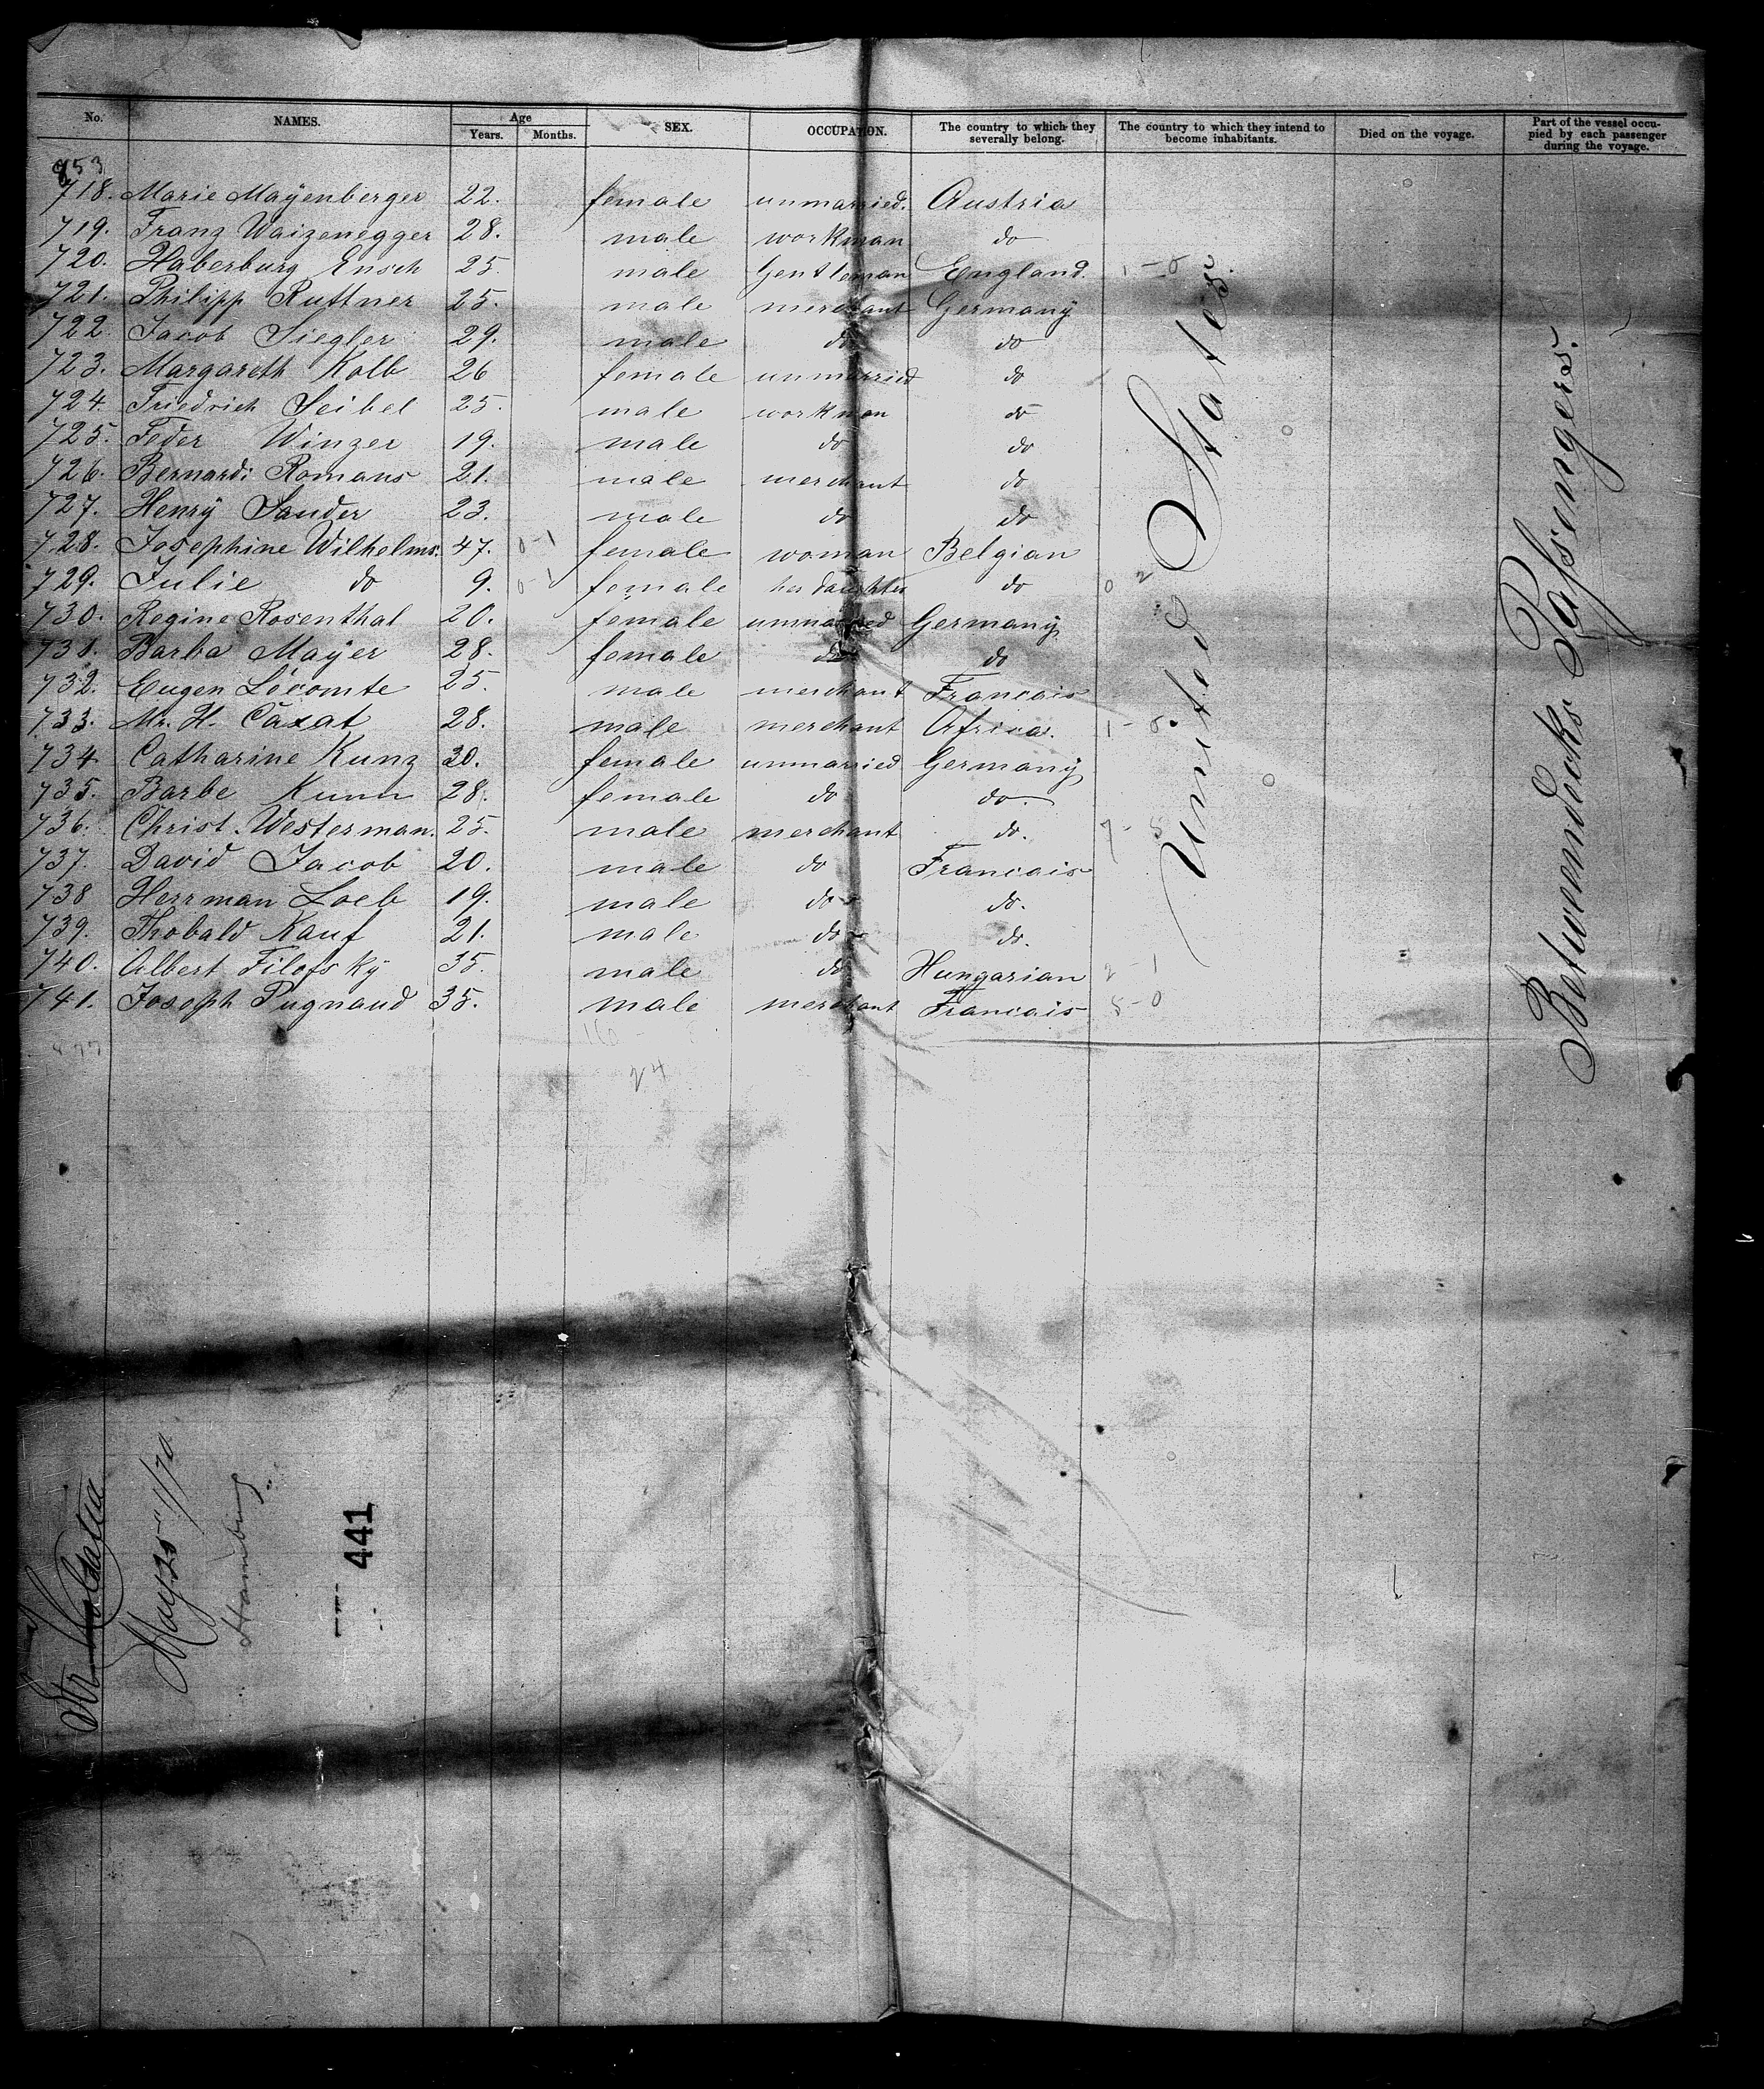 No. NAMES. Age Years. Months. SEX. OCCUPATION. The country to which they severally belong. The country to which they intend to become inhabitants. Died on the voyage. Part of the vessel occupied by each passenger during the voyage.
953
718. Marie Mayenberger 22. female unmarried. Austria
719. Franz Waizenegger 28. male workman do
720. Haberburg Ensch 25. male Gentleman England. 1-0
721. Philipp Ruttner 25. male merchant Germany
722. Jacob Siegler 29. male do do
723. Margareth Kolb 26 female unmarried do
724. Friedrich Seibel 25. male workman do
725. Feder Winzer 19. male do do
726. Bernard: Romans 21. male merchant do
727. Henry Sander 23. male do do
728. Josephine Wilhelms. 47. 0-1 female woman Belgian
729. Julie do 9. 0-1 female her daughter do 0 2
730. Regine Rosenthal 20. female unmarried Germany
731. Barba Mayer 28. female do do
732. Eugen Lecomte 25. male merchant Francais
733. Mr. H. Caxat 28. male merchant Africa. 1-0.
734 Catharine Kunz 30. female unmarried Germany
735. Barbe Kunn 28. female do do.
736. Christ. Westerman. 25. male merchant do. 7-5
737. David Jacob 20. male do Francais
738 Herrman Loeb 19. male do do.
739. Thobald Kauf 21. male do do.
740. Albert Filofsky 35. male do Hungarian 2-1
741. Joseph Pugnaud 35. male merchant Francais 8-0
United States.
Betweendecks Passengers.
16
24
Str Holsatia
May 25"/70
Hamburg.
441